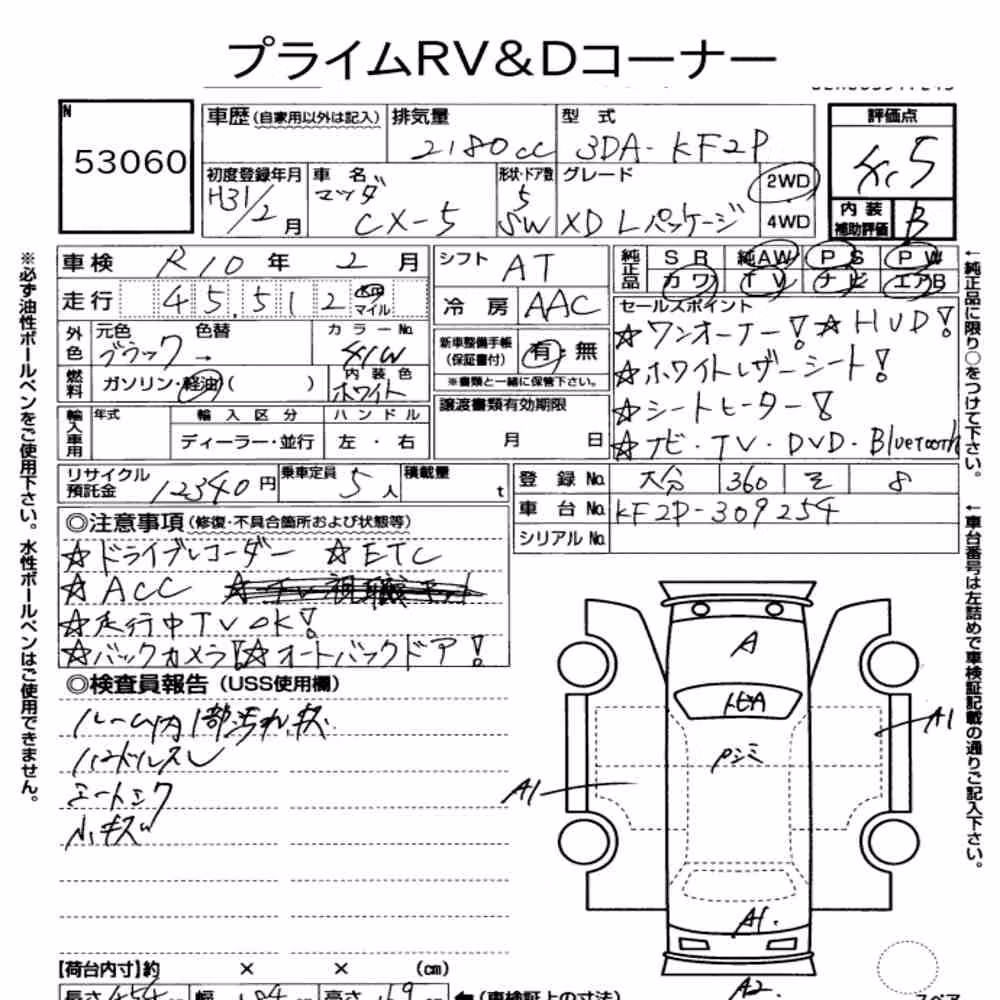 プライムRV&Dコーナー
N
53060
車歴(自家用以外は記入)
排気量
2180cc
型式
3DA-KF2P
評価点
4.5
初度登録年月
H31/2月
車名
マツダ
CX-5
形状・ドア数
5
SW
グレード
XD Lパッケージ
2WD
4WD
内装
補助評価
B
車検 R10年 2月
シフト AT
純正品
SR 純AW PS PW
カワ TV ナビ エアB
走行 45,512 km マイル
冷房 AAC
セールスポイント
☆ワンオーナー! ☆HUD!
☆ホワイトレザーシート!
☆シートヒーター!
☆ナビ・TV・DVD・Bluetooth
外色
元色 ブラック→
色替
カラーNo.
41W
新車整備手帳
(保証書付)
有・無
※書類と一緒に保管下さい。
燃料
ガソリン・軽油( )
内装色
ホワイト
輸入車用
年式
輸入区分
ハンドル
ディーラー・並行
左・右
譲渡書類有効期限
月 日
リサイクル
預託金
12340円
乗車定員
5人
積載量
t
登録No. 大分 360 そ 8
車台No. KF2P-309254
シリアルNo.
◎注意事項(修復・不具合箇所および状態等)
☆ドライブレコーダー ☆ETC
☆ACC
☆走行中TVOK!
☆バックカメラ! ☆オートバックドア!
◎検査員報告(USS使用欄)
ルーム内1部汚れ、状
ハンドルスレ
エートシワ
小キズ
A
トビA
Pシミ
A1
A1
A1.
A2.
【荷台内寸】約 × × (cm)
長さ 454
幅 184
高さ 169
←(車検証上の寸法)
スペア
※必ず油性ボールペンをご使用下さい。水性ボールペンはご使用できません。
←純正品に限り○をつけて下さい。
←車台番号は左詰めで車検証記載の通りご記入下さい。